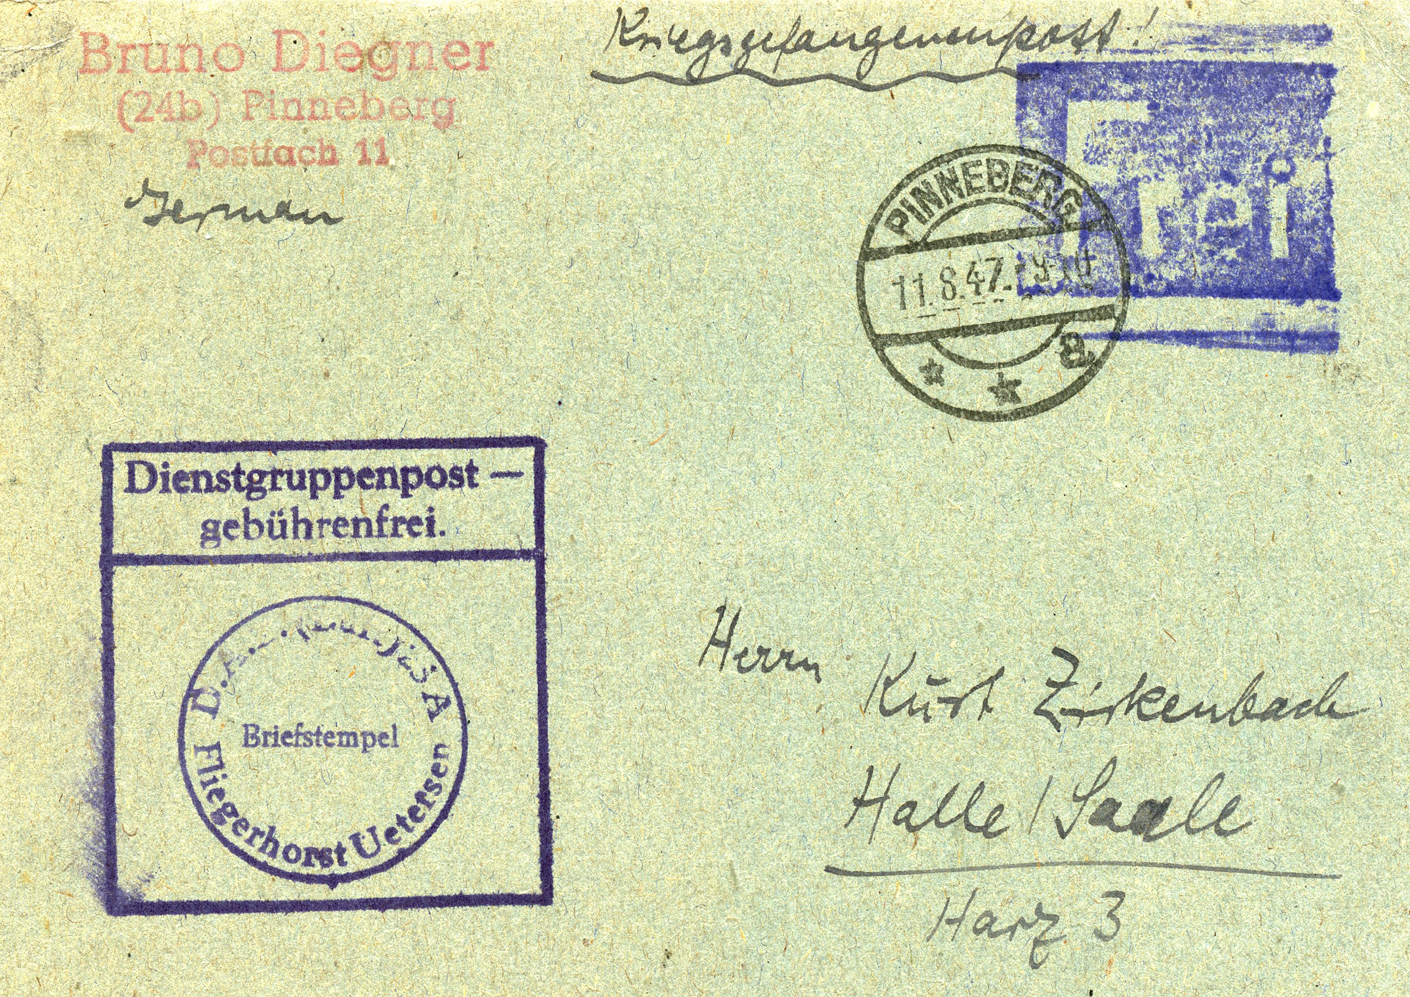 Bruno Diegner
(24b) Pinneberg
Postfach 11
German
Kriegsgefangenenpost!
Frei
PINNEBERG
11.8.47.
a
Dienstgruppenpost —
gebührenfrei.
Briefstempel
Fliegerhorst Uetersen
Herrn
Kurt Zirkenbach
Halle / Saale
Harz 3